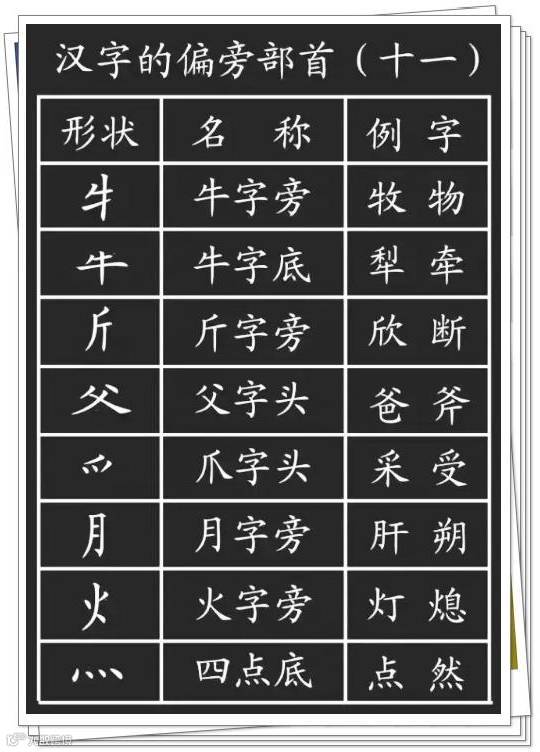 汉字的偏旁部首（十一）
形状 名称 例字
牜 牛字旁 牧 物
牛 牛字底 犁 牵
斤 斤字旁 欣 断
父 父字头 爸 斧
爫 爪字头 采 受
月 月字旁 肝 朔
火 火字旁 灯 熄
灬 四点底 点 然